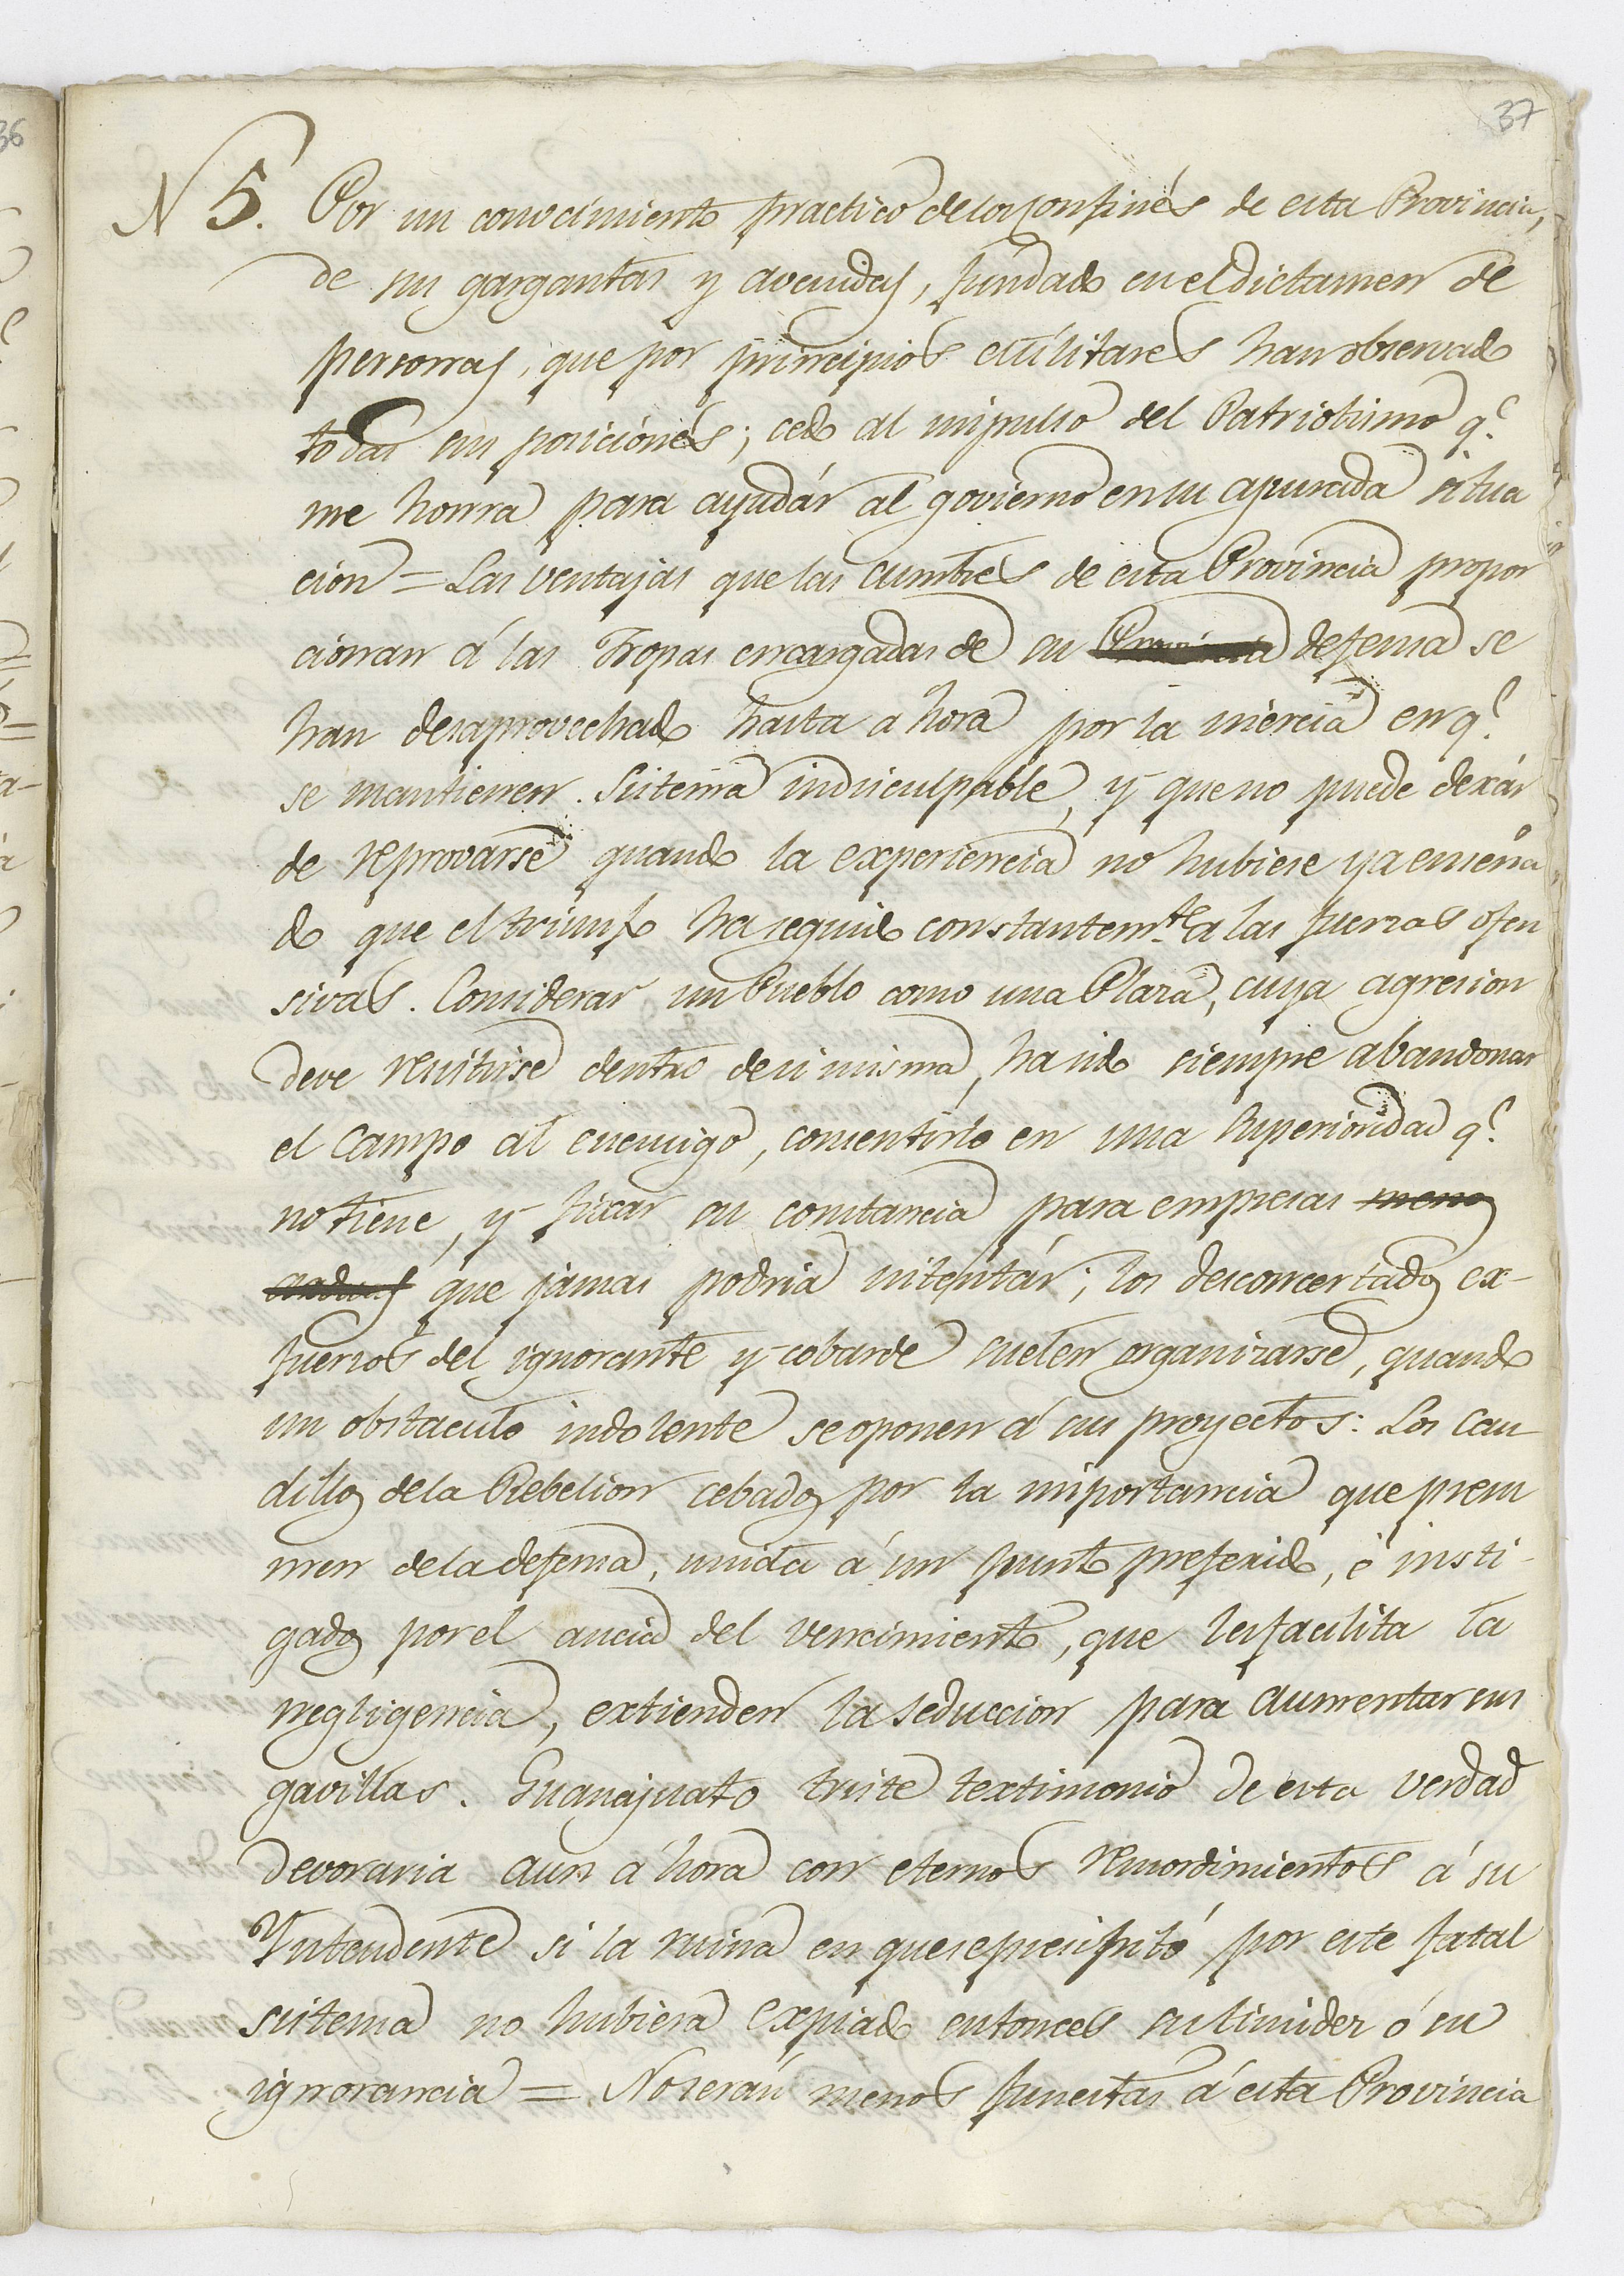 37
36
N 5. Por un conocimiento practico de los confinés de esta Provincia,
de sus gargantas y avenidas, fundado en el dictamen de
personas, que por principios militares han observado
todas sus posicionés; cedo al impulso del Patriotismo q.e
me honrra para ayudár al govierno en su apurada situa
cion = Las ventajas que las cumbres de esta Provincia propor
cionan á las Tropas encargadas de su Provincia defensa se
han desaprovechado hasta a hora por la inercia en q.e
se mantienen. Sistema indisculpable, y que no puede dexár
de reprovarse quando la experiencia no hubiese ya enseña
do que el triunfo ha seguido constantem.te a las fuerzas ofen
sivas. Considerar un Pueblo como una Plaza, cuya agresion
deve resistirse dentro de si misma, ha sido siempre abandonar
el campo al enemigo, consentirlo en una superioridad q.e
no tiene, y fixar su constancia para empresas menos
arduas que jamas podria intentár; los desconcertados ex-
fuerzos del ignorante y cobarde suelen organizarse, quando
un obstaculo indolente se oponen á sus proyectos: Los Cau
dillos de la Rebelion cebados por la importancia que presu
men de la defensa, unida á un punto preferido, é insti-
gados por el ancia del vencimiento, que les facilita la
negligencia, extienden la seduccion para aumentar sus
gavillas. Guanajuato triste textimonio de esta verdad
devoraria aun a hora con eternos remordimientos á su
Yntendente si la ruina en que se presipitó por este fatal
sistema no hubiera expiado entonces su timidez ó su
ignorancia = No serán menos funestas á esta Provincia